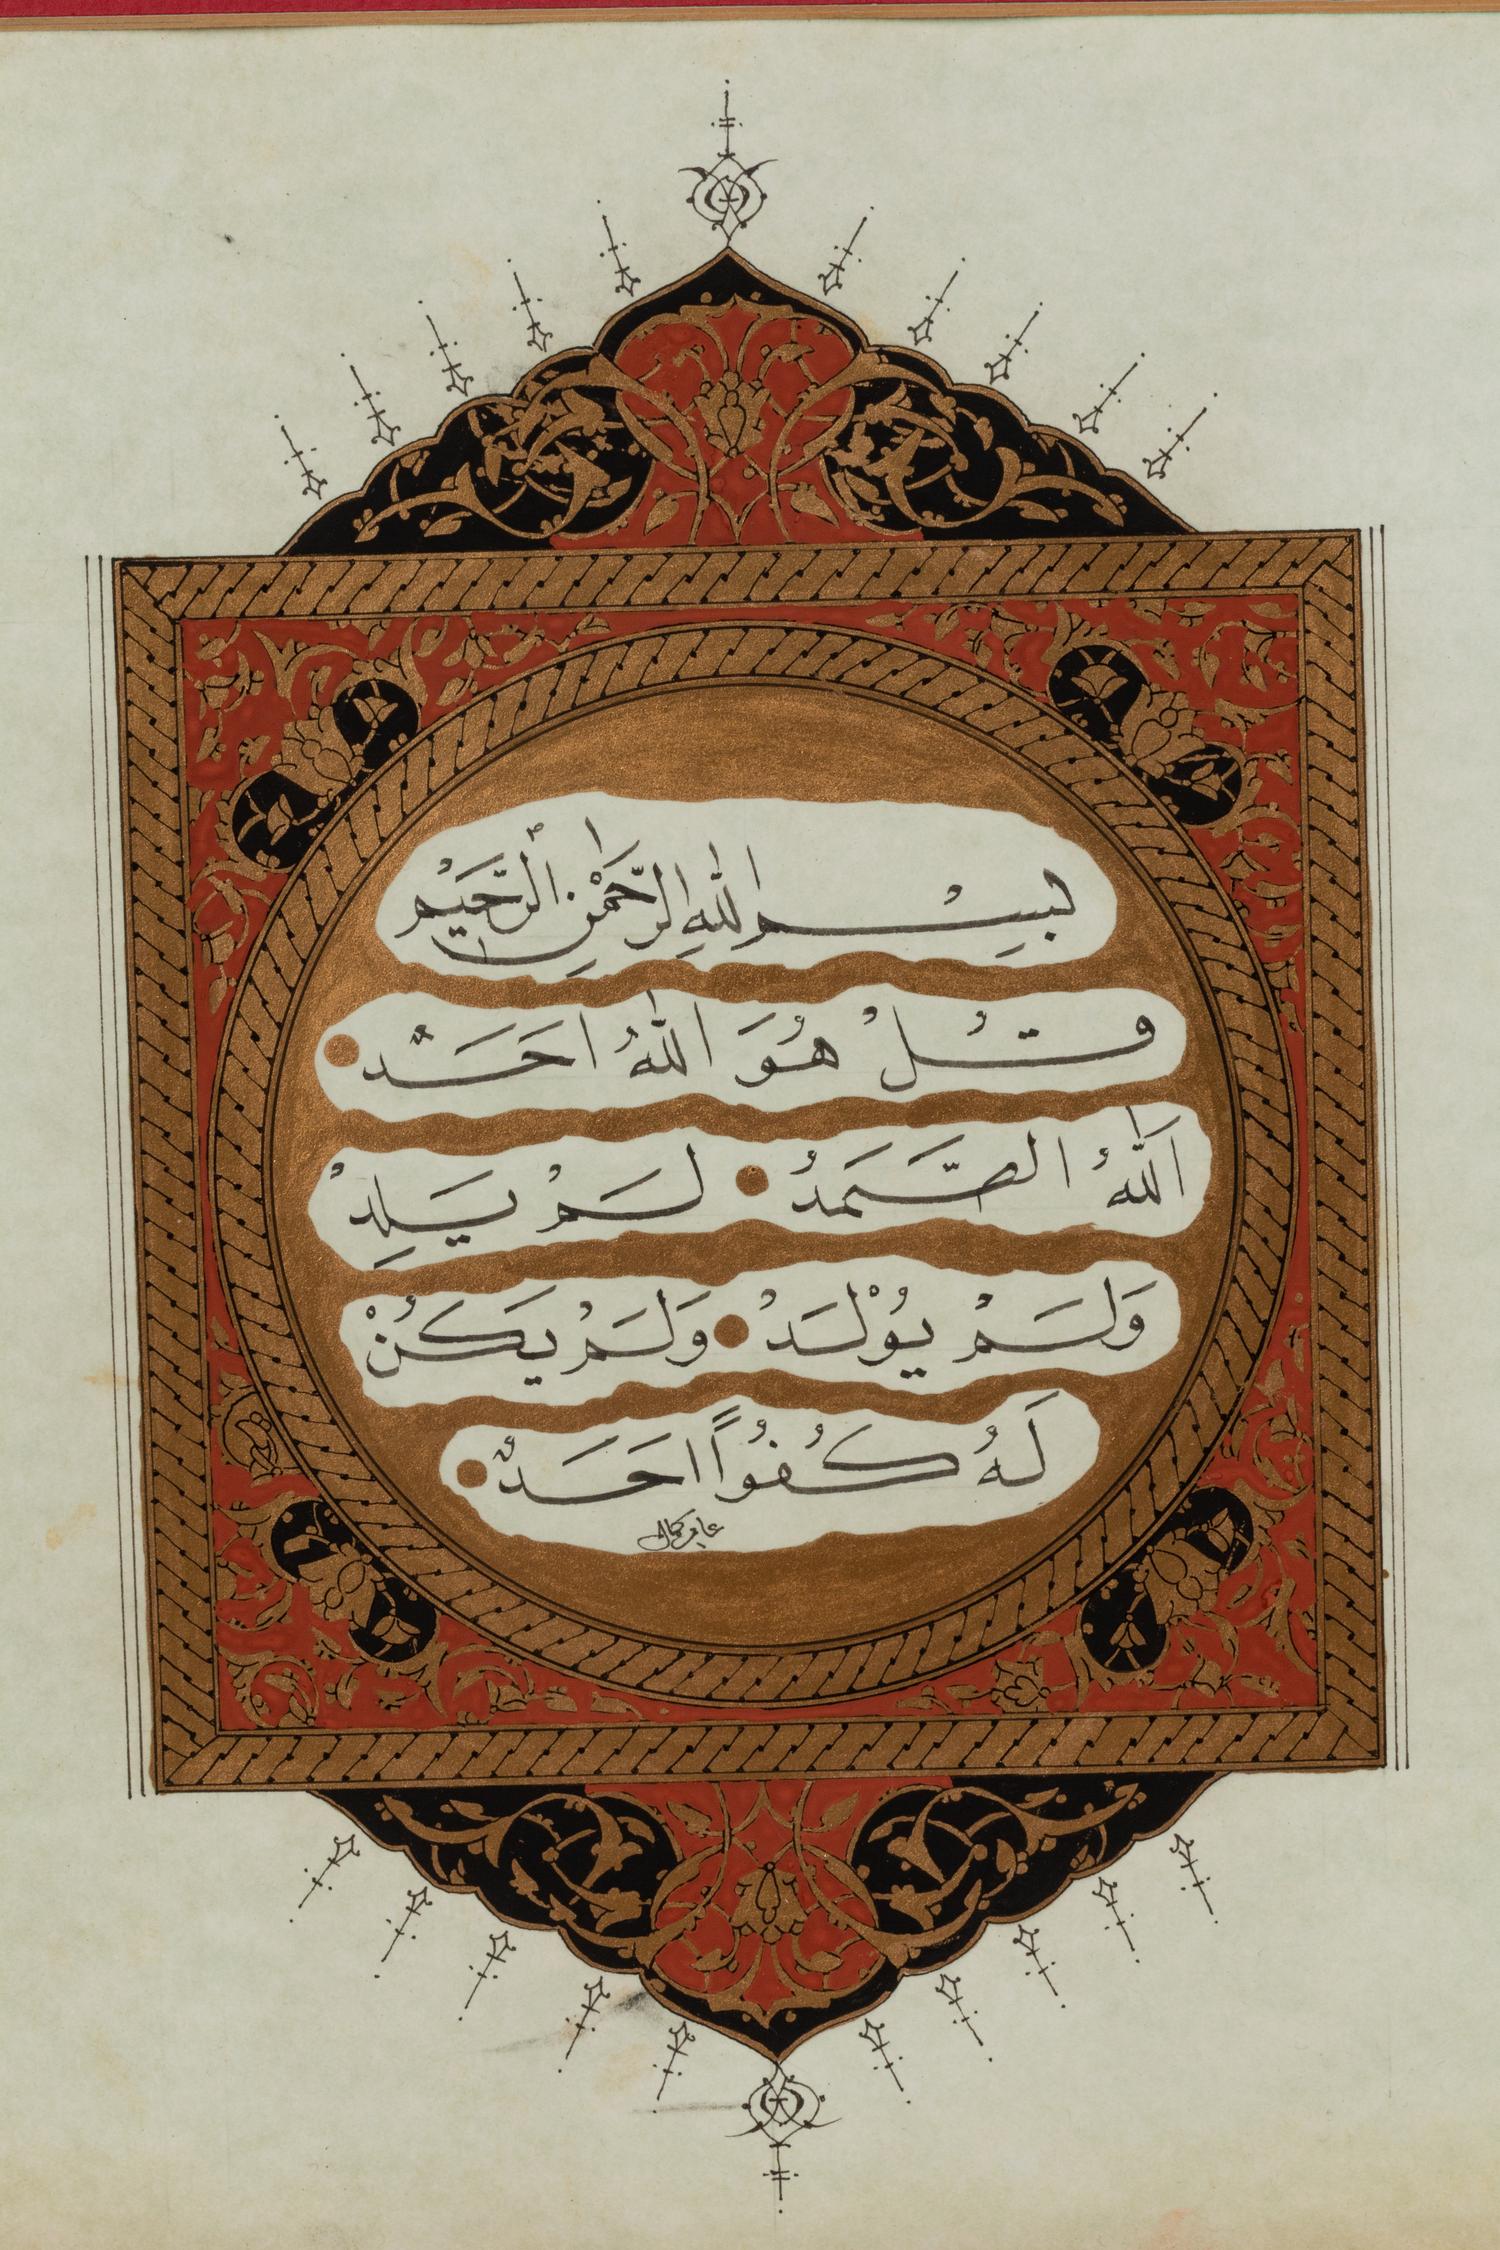 بِسْمِ اللّٰهِ الرَّحْمٰنِ الرَّحِيْمِ
قُلْ هُوَ اللّٰهُ اَحَدٌ
اَللّٰهُ الصَّمَدُ لَمْ يَلِدْ
وَلَمْ يُوْلَدْ وَلَمْ يَكُنْ
لَهُ كُفُوًا اَحَدٌ